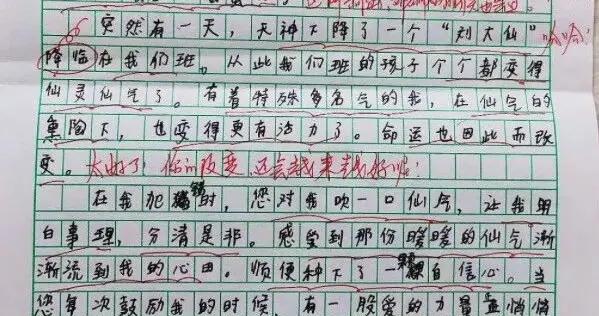 突然有一天，天神下降了一个“刘大仙” 哈哈！
降临在我们班。从此我们班的孩子个个都变得
仙灵仙气了。有着特殊多名气的我，在仙气的
熏陶下，也变得更有法力了。命运也因此而改
变。太好了！你的改变，还会越来越好哈！
在我犯错时，您对我吹一口仙气，让我明
白事理，分清是非。感受到那份暖暖的仙气渐
渐流到我的心田。顺便种下了一颗自信心。当
您每次鼓励我的时候，有一股爱的力量